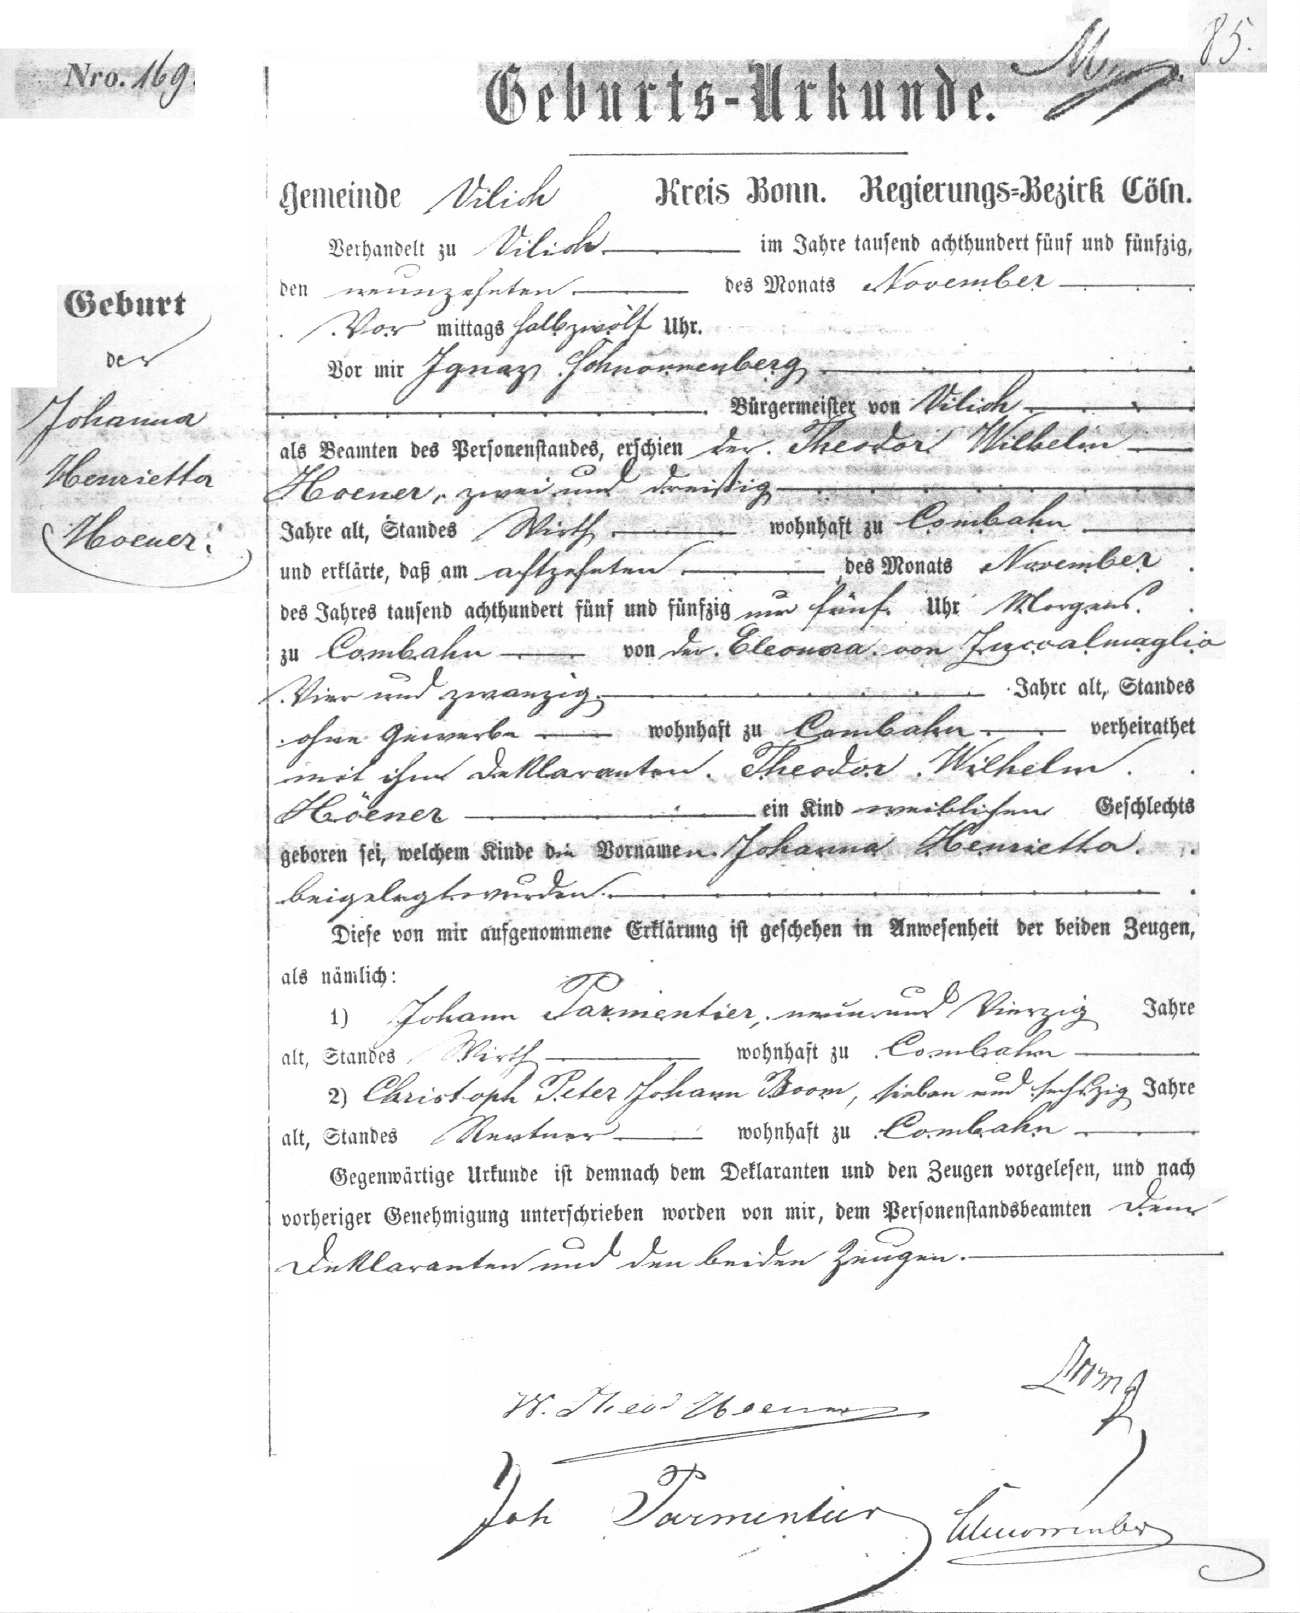 85.
Nro. 169.
Geburts-Urkunde.
Gemeinde Vilich Kreis Bonn. Regierungs-Bezirk Cöln.
Verhandelt zu Vilich im Jahre tausend achthundert fünf und fünfzig,
den neunzehnten des Monats November
Vor mittags halb zwölf Uhr.
Vor mir Ignaz Schnorrenberg
Bürgermeister von Vilich
als Beamten des Personenstandes, erschien der Theodor Wilhelm
Hoener, zwei und dreißig
Jahre alt, Standes Wirth wohnhaft zu Combahn
und erklärte, daß am achtzehnten des Monats November
des Jahres tausend achthundert fünf und fünfzig um fünf Uhr Morgens
zu Combahn von der Eleonora von Zuccalmaglio
Vier und zwanzig Jahre alt, Standes
ohne Gewerbe wohnhaft zu Combahn verheirathet
mit ihm Deklaranten Theodor Wilhelm
Höener ein Kind weiblichen Geschlechts
geboren sei, welchem Kinde die Vornamen Johanna Henrietta
beigelegt wurden.
Diese von mir aufgenommene Erklärung ist geschehen in Anwesenheit der beiden Zeugen,
als nämlich:
1) Johann Parmentier, neun und Vierzig Jahre
alt, Standes Wirth wohnhaft zu Combahn
2) Christoph Peter Johann Boom, sieben und sechszig Jahre
alt, Standes Rentner wohnhaft zu Combahn
Gegenwärtige Urkunde ist demnach dem Deklaranten und den Zeugen vorgelesen, und nach
vorheriger Genehmigung unterschrieben worden von mir, dem Personenstandsbeamten dem
Deklaranten und den beiden Zeugen.
Geburt
der
Johanna
Henrietta
Hoener.
W. Theod Hoener
Boom
Joh Parmentier
Schnorrenberg